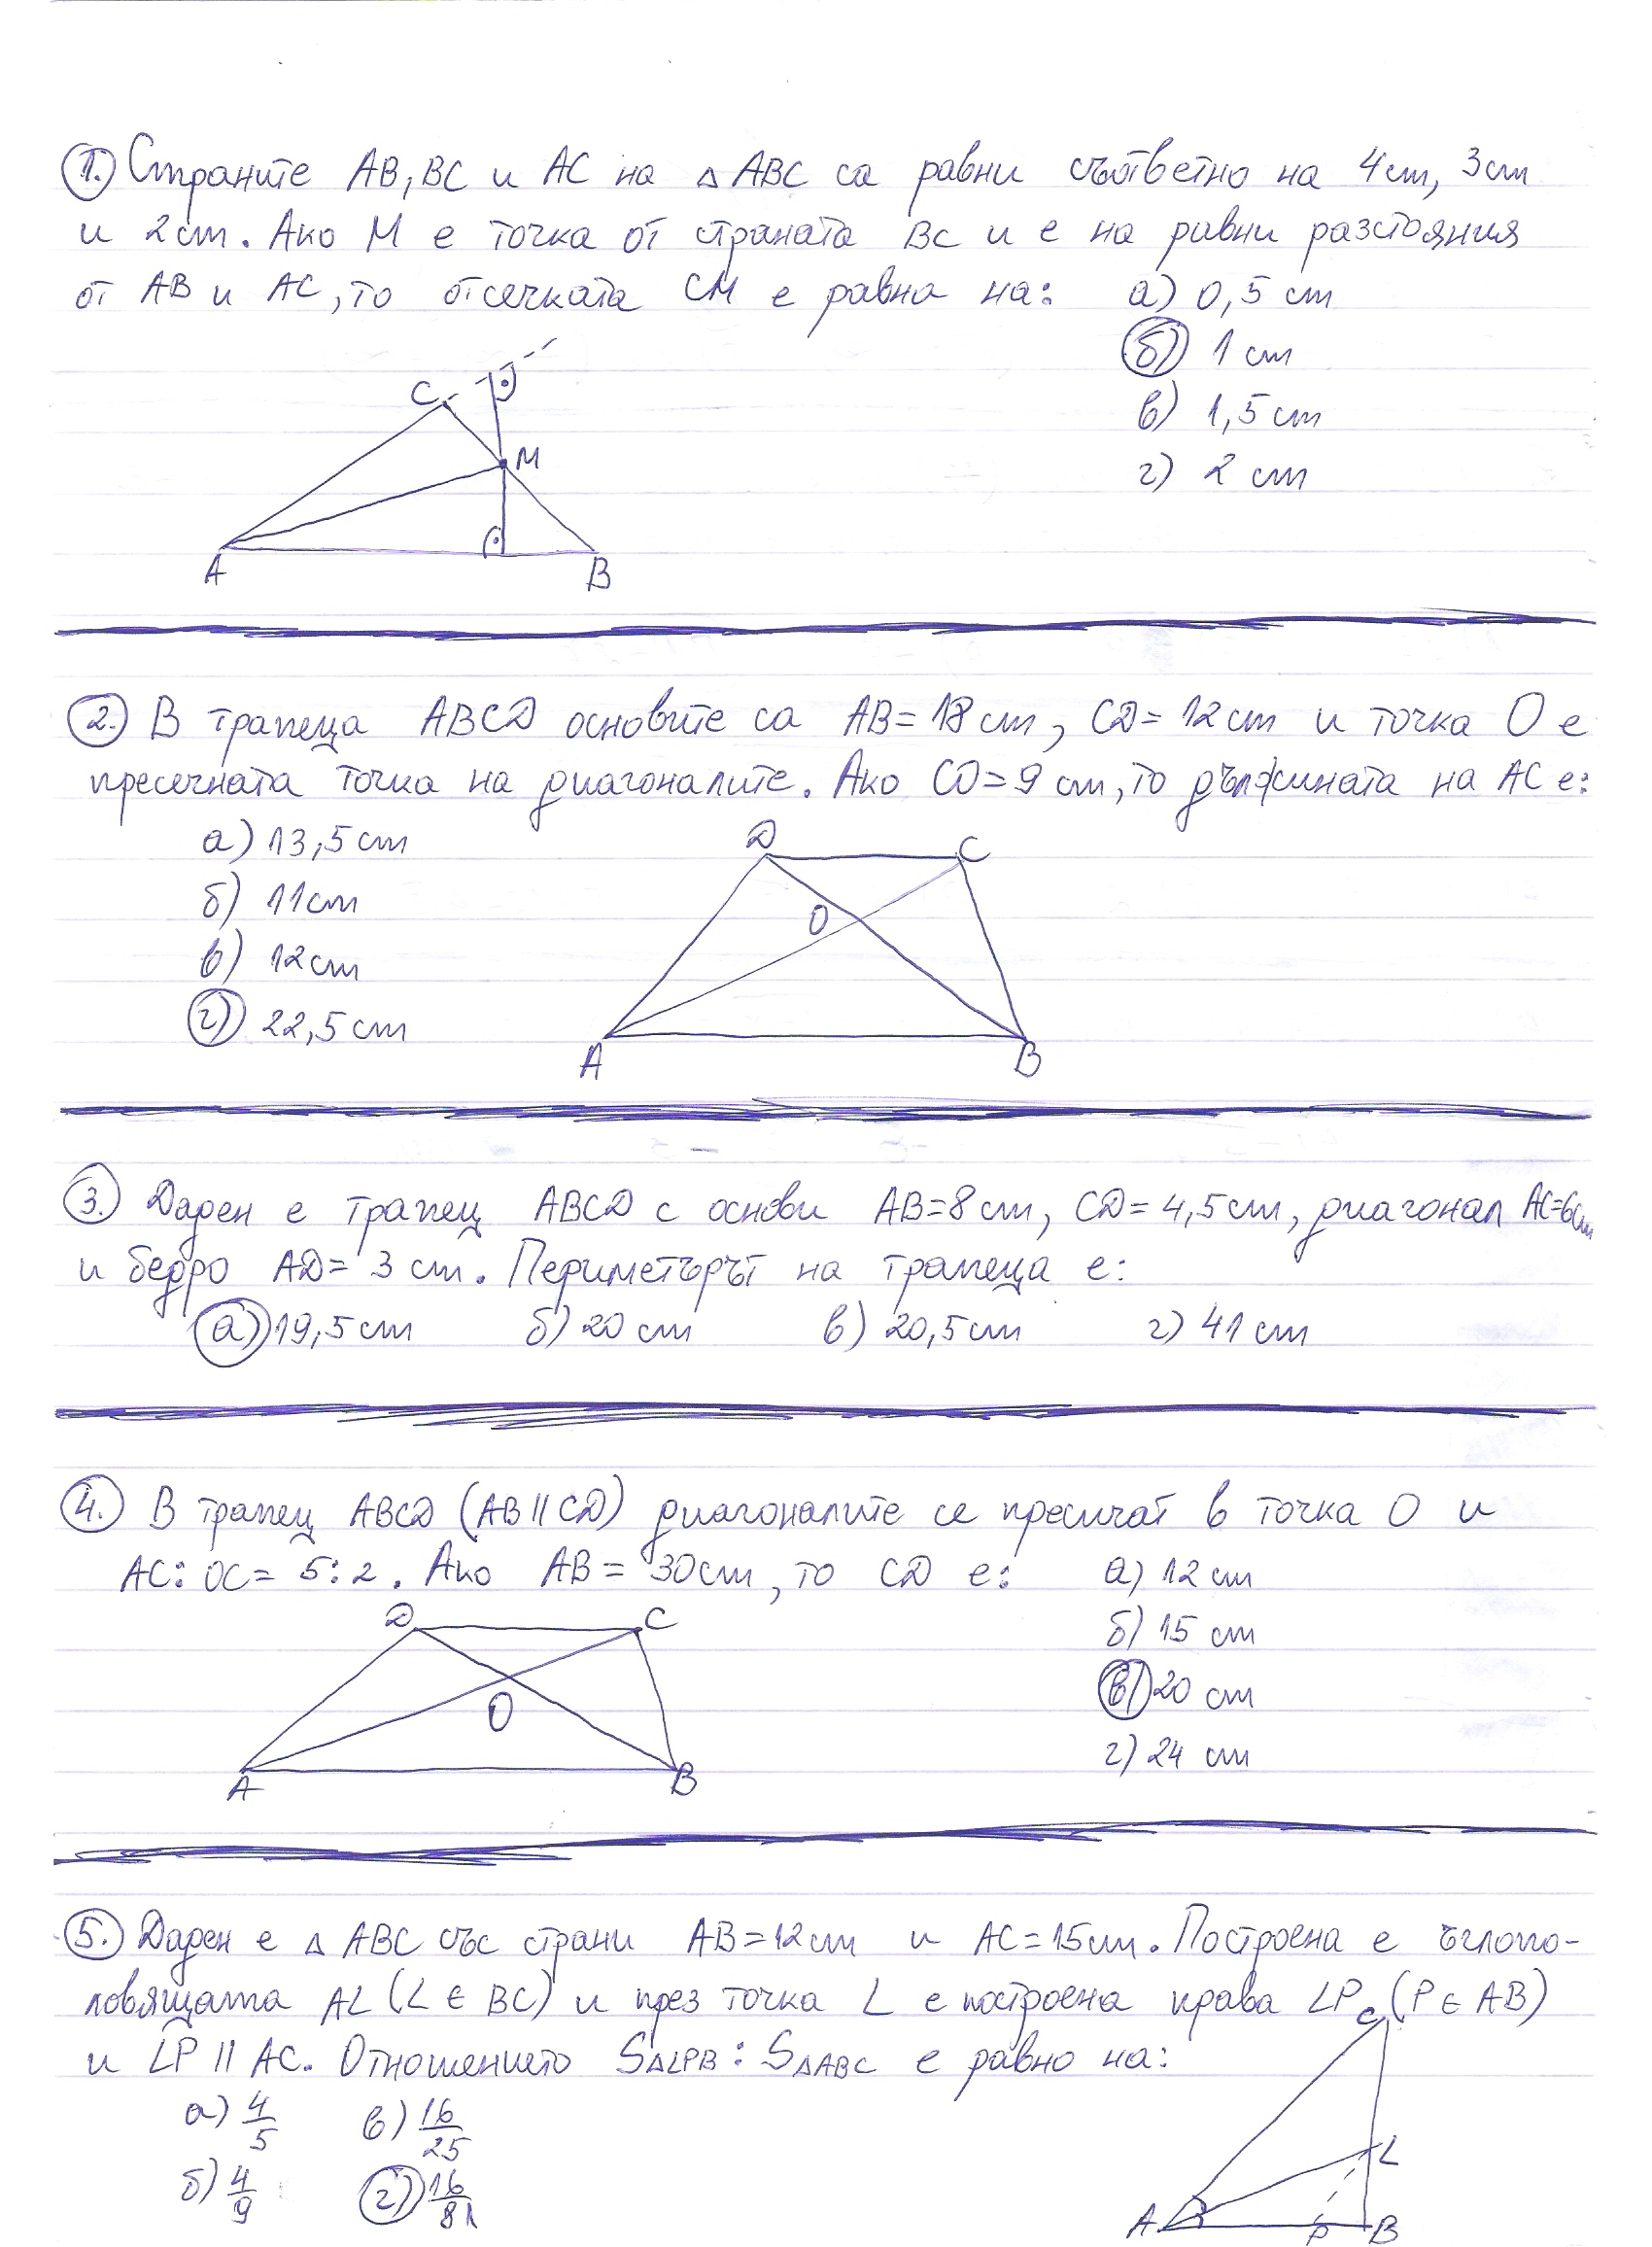 1. Страните AB, BC и AC на △ABC са равни съответно на 4cm, 3cm
и 2cm. Ако M е точка от страната BC и е на равни разстояния
от AB и AC, то отсечката CM е равна на: а) 0,5 cm
б) 1 cm
в) 1,5 cm
г) 2 cm
C
M
A
B
2. В трапеца ABCD основите са AB=18cm, CD=12cm и точка O е
пресечната точка на диагоналите. Ако CO=9 cm, то дължината на AC е:
а) 13,5cm
б) 11cm
в) 12cm
г) 22,5cm
D
C
O
A
B
3. Даден е трапец ABCD с основи AB=8cm, CD=4,5cm, диагонал AC=6cm
и бедро AD=3cm. Периметърът на трапеца е:
а) 19,5cm б) 20 cm в) 20,5cm г) 41 cm
4. В трапец ABCD (AB||CD) диагоналите се пресичат в точка O и
AC:OC=5:2. Ако AB=30cm, то CD е: а) 12 cm
б) 15 cm
в) 20 cm
г) 24 cm
D
C
O
A
B
5. Даден е △ABC със страни AB=12cm и AC=15cm. Построена е ъглопо-
ловящата AL (L∈BC) и през точка L е построена права LP (P∈AB)
и LP||AC. Отношението S△LPB:S△ABC е равно на:
а) 4/5 в) 16/25
б) 4/9 г) 16/81
C
L
A
P
B